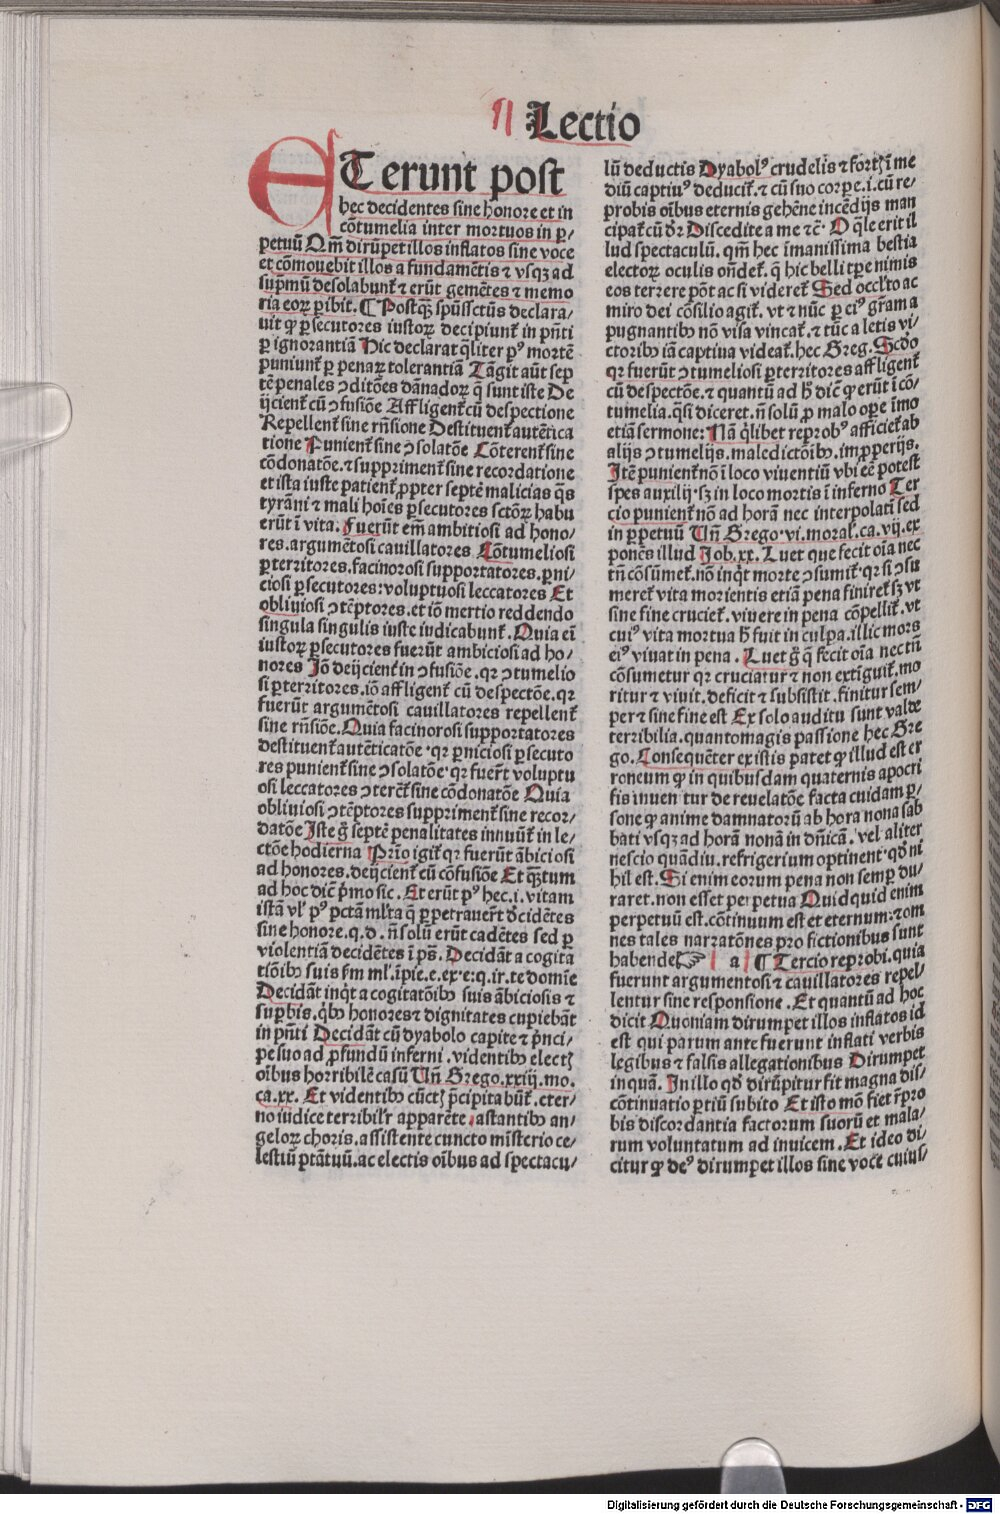 ¶ Lectio
ETerunt post
hec decidentes sine honore et in
cōtumelia inter mortuos in ꝑ⸗
petuū Qm̄ dirūpet illos inflatos sine voce
et cōmouebit illos a fundamētis ⁊ vsqꝫ ad
supͥmū desolabunt̄ ⁊ erūt gemētes ⁊ memo
ria eoꝝ ꝑibit. ¶ Postqꝫ spūssctūs declara⸗
uit ꝙ ꝑsecutores iustoꝝ decipiunt̄ in pn̄ti
ꝑ ignorantiā Hic declarat q̄liter pꝰ mortē
puniunt̄ ꝑ penaꝝ tolerantiā Tāgit aūt sep
tē penales ꝯditōes dānadoꝝ q̄ sunt iste De
ijcient̄ cū ꝯfusiōe Affligent̄ cū despectione
Repellent̄ sine rn̄sione Destituent̄ autētica
tione Punient̄ sine ꝯsolatōe Cōterent̄ sine
cōdonatōe. ⁊ suppriment̄ sine recordatione
et ista iuste patient̄ ꝓpter septē malicias q̄s
tyrāni ⁊ mali hoīes ꝑsecutores sctōꝝ habu
erūt ī vita. Fuerūt em̄ ambitiosi ad hono⸗
res. argumētosi cauillatores Cōtumeliosi
ꝑterritores. facinorosi supportatores. ꝑni⸗
ciosi ꝑsecutores: voluptuosi leccatores Et
obliuiosi ꝯtēptores. et iō mertio reddendo
singula singulis iuste iudicabunt̄. Quia eī
iustoꝝ ꝑsecutores fuerūt ambiciosi ad ho⸗
nores Jō deijcient̄ in ꝯfusiōe. qꝛ ꝯtumelio
si ꝑterritores. iō affligent̄ cū despectōe. qꝛ
fuerūt argumētosi cauillatores repellent̄
sine rn̄siōe. Quia facinorosi supportatores
destituent̄ autēticatōe. qꝛ ꝑniciosi ꝑsecuto
res punient̄ sine ꝯsolatōe. qꝛ fuer̄t voluptu
osi leccatores ꝯterēt̄ sine cōdonatōe Quia
obliuiosi ꝯtēptores suppriment̄ sine recor⸗
datōe Iste g̊ septē penalitates innuūt̄ in le⸗
ctōe hodierna Prīo igit̄ qꝛ fuerūt ābiciosi
ad honores. deijcient̄ cū cōfusiōe Et qꝫtum
ad hoc dic̄ pͥmo sic. Et erūt pꝰ hec. i. vitam
istā vl' pꝰ pctām ml'ta q̄ ꝑpetrauer̄t d'cidētes
sine honore. q. d. n̄ solū erūt cadētes sed ꝑ
violentiā decidētes ī ps̄. Decidāt a cogita
tiōibꝰ suis ẜm ml'. īpie. e. ex. e: q. ir. te domīe
Decidāt inq̄t a cogitatōibꝰ suis ābiciosis ⁊
suꝑbis. q̄bꝰ honores ⁊ dignitates cupiebāt
in pn̄ti Decidāt cū dyabolo capite ⁊ pͥnci⸗
pe suo ad ꝓfundū inferni. videntibꝰ electꝭ
oībus horribilē casū Vn̄ Grego. xxiij. mo.
ca. xx. Et videntibꝰ cūctꝭ p̄cipitabūt̄. eter⸗
no iudice terribil'r apparēte. astantibꝰ an⸗
geloꝝ choris. assistente cuncto mīsterio ce⸗
lestiū ptātuū. ac electis oībus ad spectacu⸗
lū deductis Dyabolꝰ crudelis ⁊ fortꝭ ī me
diū captiuꝰ deducit̄. ⁊ cū suo corꝑe. i. cū re⸗
probis oībus eternis gehēne incēdijs man
cipat̄ cū dr̄ Discedite a me ⁊c̄. O q̄le erit il
lud spectaculū. qm̄ hec īmanissima bestia
electoꝝ oculis ōndet̄. q̄ hic belli tꝑe nimis
eos terrere pōt ac si videret̄ Sed occl'to ac
miro dei cōsilio agit̄. vt ⁊ nūc ꝑ eiꝰ gr̄am a
pugnantibꝰ nō visa vincat̄. ⁊ tūc a letis vi⸗
ctoribꝰ iā captiua videat̄. hec Greg. Scd̄o
qꝛ fuerūt ꝯtumeliosi ꝑterritores affligent̄
cū despectōe. ⁊ quantū ad h̄ dic̄ ꝙ erūt ī cō⸗
tumelia. q̄si diceret. n̄ solū ꝓ malo oꝑe īmo
etiā sermone: Nā q̄libet reprobꝰ afficiet̄ ab
alijs ꝯtumelijs. maledictōibꝰ. imꝓperijs.
Itē punient̄ nō ī loco viuentiū vbi eē potest
spes auxilij. sꝫ in loco mortis ī inferno Ter
cio punient̄ nō ad horā nec interpolatī sed
in ꝑpetuū Vn̄ Grego. vi. moral'. ca. vij. ex
ponēs illud Job. xx. Luet que fecit oīa nec
tn̄ cōsūmet̄. nō inq̄t morte ꝯsumit̄. qꝛ si ꝯsu
meret̄ vita morientis etiā pena finiret̄ sꝫ vt
sine fine cruciet̄. viuere in pena cōpellit̄. vt
cuiꝰ vita mortua h̄ fuit in culpa. illic mors
eiꝰ viuat in pena. Luet g̊ q̄ fecit oīa nec tn̄
cōsumetur qꝛ cruciatur ⁊ non extīguit̄. mo
ritur ⁊ viuit. deficit ⁊ subsistit. finitur sem⸗
per ⁊ sine fine est Ex solo auditu sunt valde
terribilia. quantomagis passione hec Gre
go. Consequēter ex istis patet ꝙ illud est er
roneum ꝙ in quibusdam quaternis apocri
fis inuen tur de reuelatōe facta cuidam ꝑ⸗
sone ꝙ anime damnatorū ab hora nona sab
bati vsqꝫ ad horā nonā in dn̄icā. vel aliter
nescio quādiu. refrigerium optinent. qd̄ ni
hil est. Si enim eorum pena non semꝑ du⸗
raret. non esset perpetua Quidquid enim
perpetuū est. cōtinuum est et eternum: ⁊ om
nes tales narratōnes pro fictionibus sunt
habende ☞ a ¶ Tercio reprobi. quia
fuerunt argumentosi ⁊ cauillatores repel⸗
lentur sine responsione. Et quantū ad hoc
dicit Quoniam dirumpet illos inflatos id
est qui parum ante fuerunt inflati verbis
legibus ⁊ falsis allegationibus Dirumpet
inquā. In illo qd̄ dirūpitur fit magna dis⸗
cōtinuatio ꝑtiū subito Et isto mō fiet īrepro
bis discordantia factorum suorū et mala⸗
rum voluntatum ad inuicem. Et ideo di⸗
citur ꝙ deꝰ dirumpet illos sine voce cuius⸗
Digitalisierung gefördert durch die Deutsche Forschungsgemeinschaft - DFG